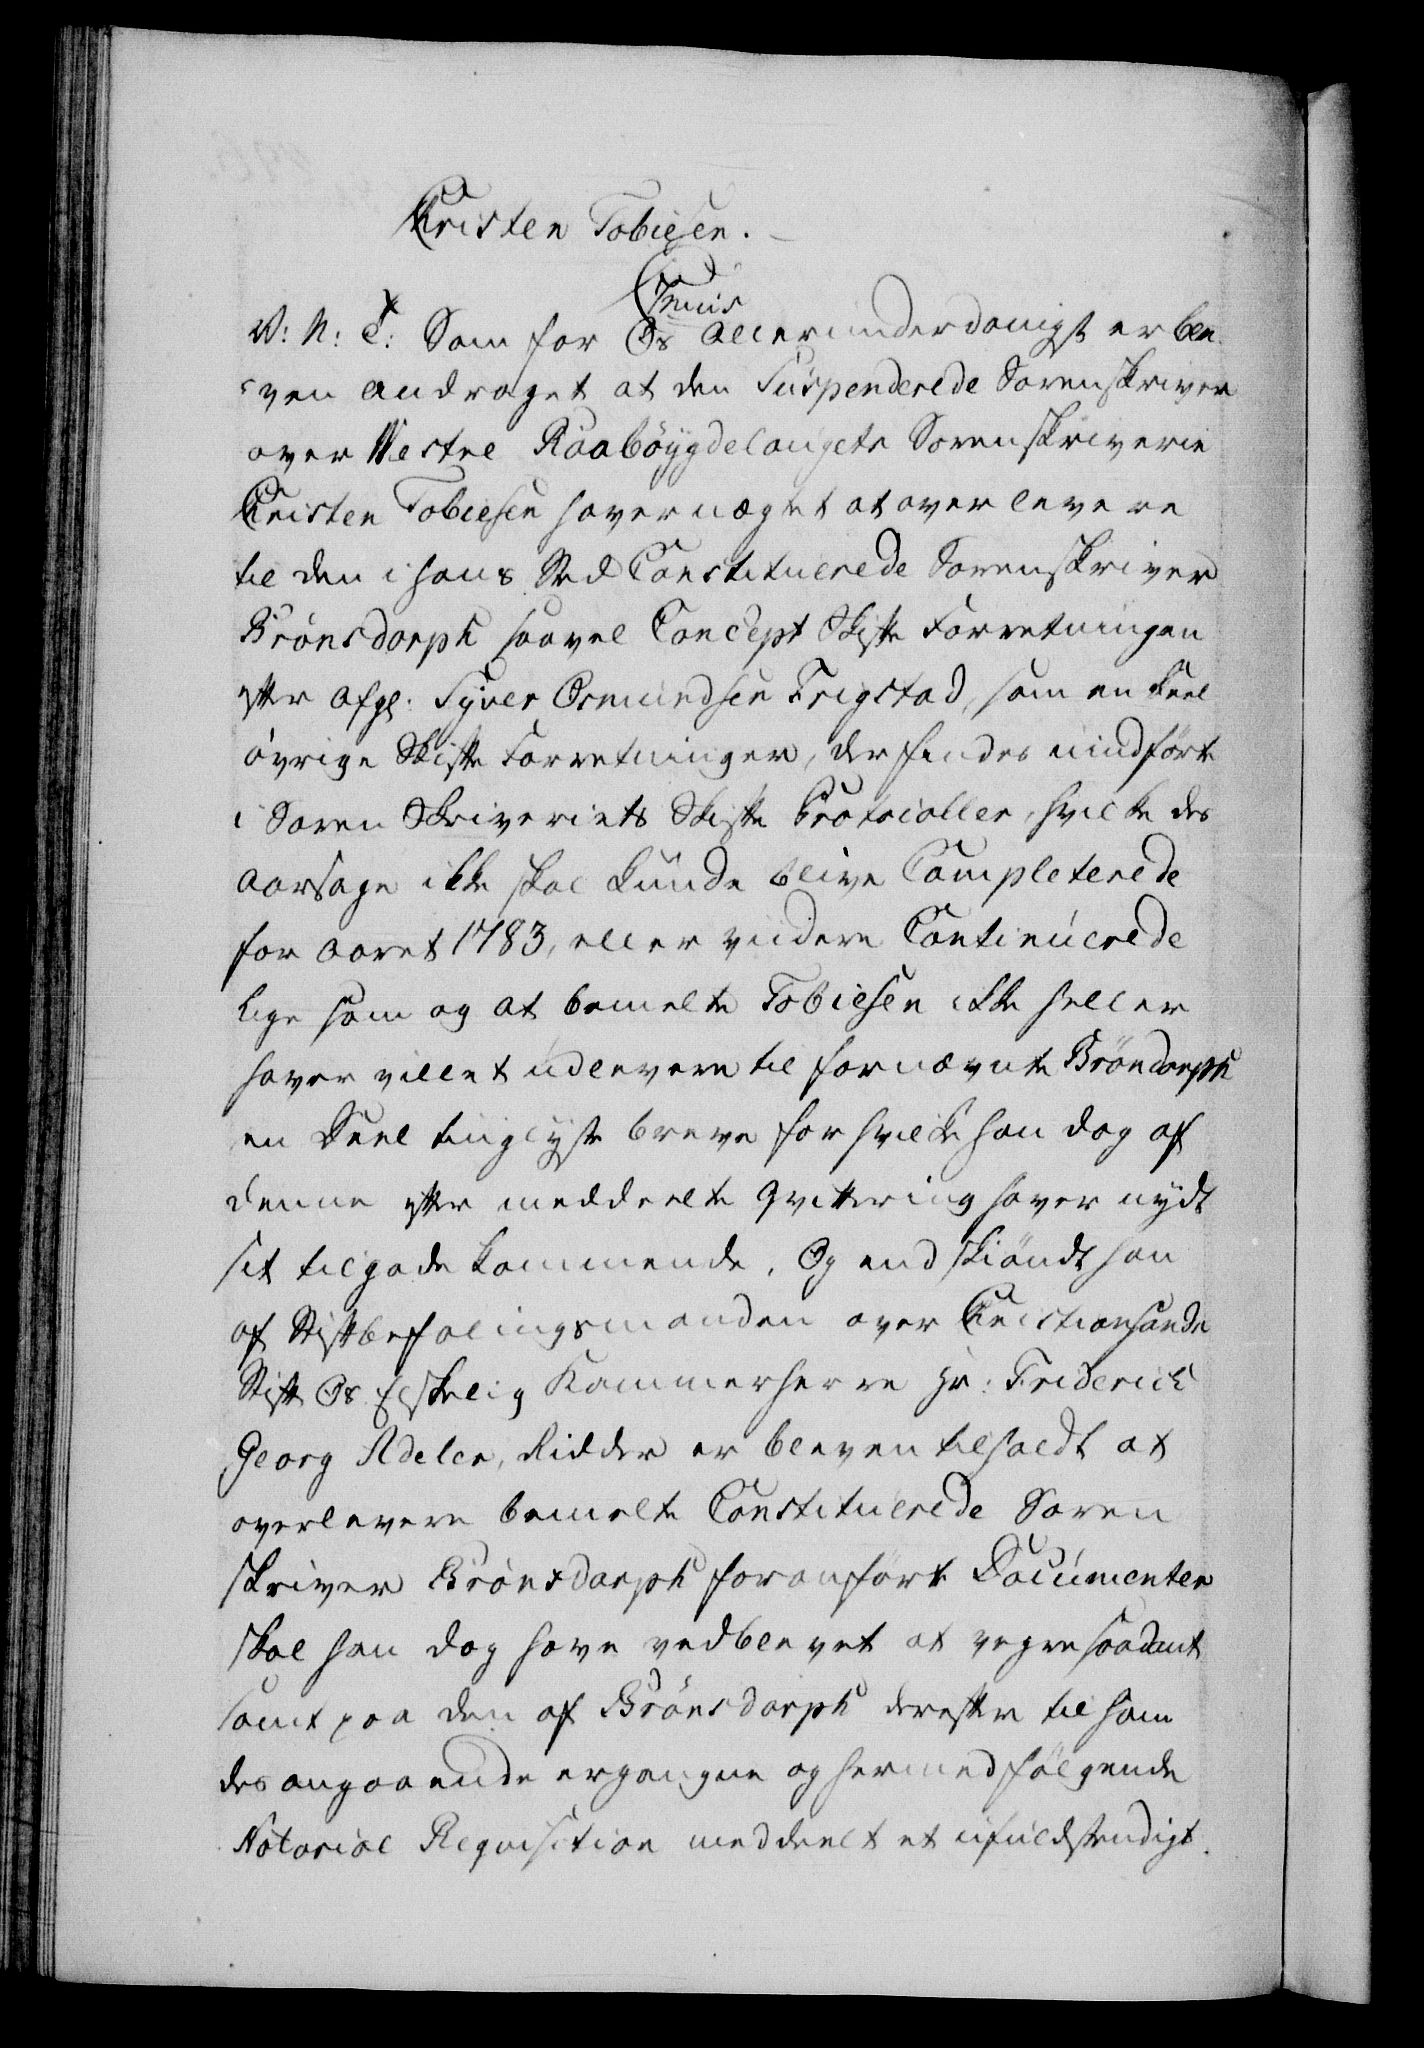 Christen Tobiesen.
Cmis
V: N: C: Som for Os allerunderdanigst er ble¬
ven andraget at den Suspenderede Sorenskriver
over Vestre Raabøygdelaugets Sorenskriverie
Christen Tobiesen haver nægtet at overlevere
til den i hans Sted Constituerede Sorenskriver
Brønsdorph saavel Concept Skifte Forretningen
efter afgl: Syver Osmundsen Trigstad, som en deel
øvrige Skifte Forretninger, der findes uindførte
i Soren Skriveriets Skifte Protocoller, hvilke des
aarsage ikke skal kunde blive Completerede
for Aaret 1783, eller viidere Continuerede
lige som og at bemelte Tobiesen ikke heller
haver villet udlevere til fornævnte Bröndorph
en Deel tinglyste breve for hvilke han dog af
denne efter meddeelte Qvittering haver nydt
sit tilgodekommende. Og endskiöndt han
af Stiftbefalingsmanden over Christiansands
Stift Os Elskelig Kammerherre Hr: Friderich
Georg Adeler, Ridder er bleven tilholdt at
overlevere bemelte Constituerede Soren
skriver Brönsdorph foranførte Documenter
skal han dog have vedblevet at vegre saadant
samt paa den af Brönsdorph derefter til ham
desangaaende ergangne og hermed følgende
Notarial Requisition meddeelt et ufuldstendigt